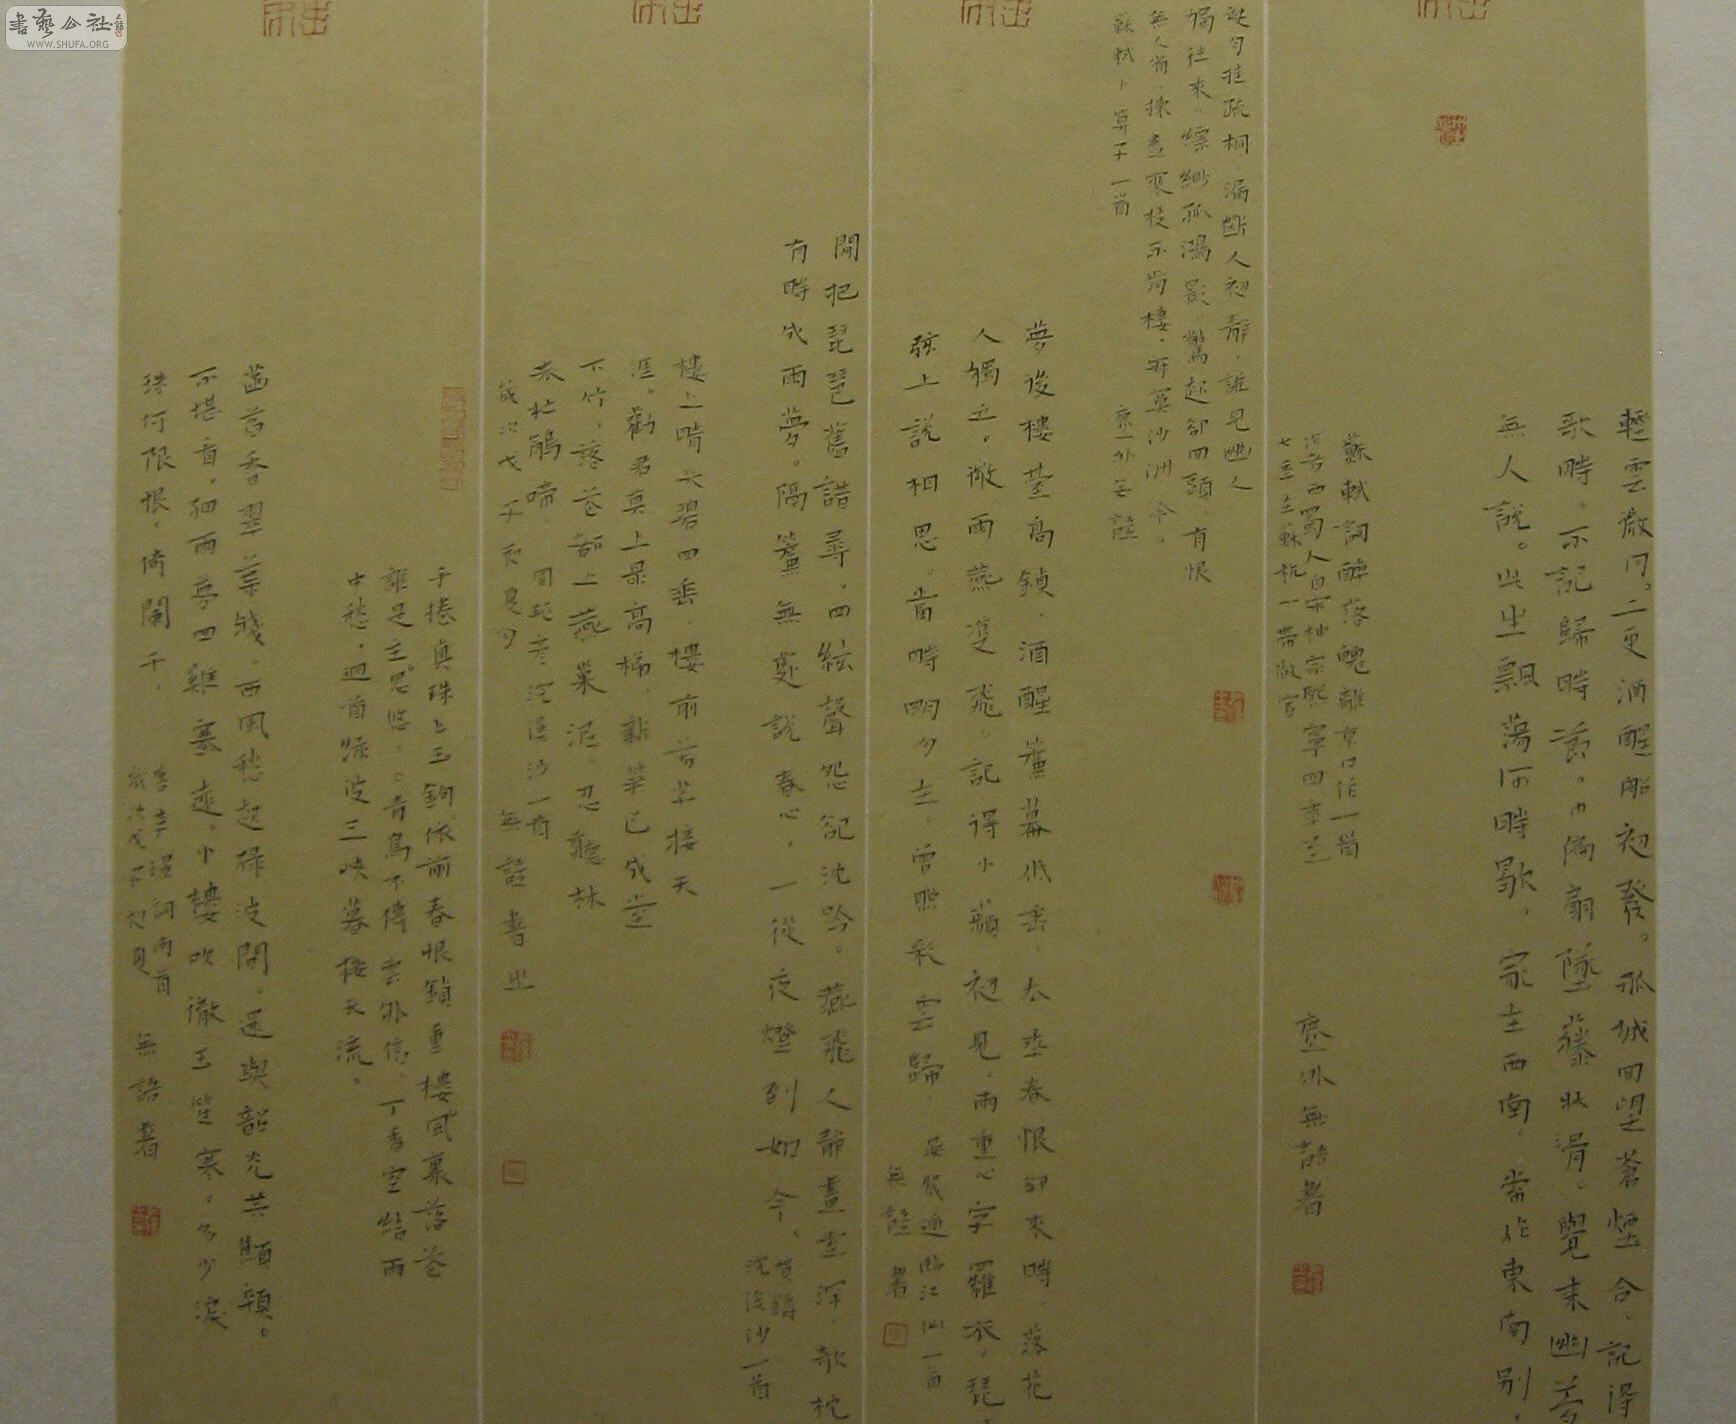 輕雲微月。二更酒醒船初發。孤城回望蒼煙合。記得
歌時。不記歸時節。巾偏扇墜藤牀滑。覺來幽夢
無人說。此生飄蕩何時歇。家在西南。常作東南別。
蘇軾詞醉落魄離京口作一首
無語書
缺月挂疏桐漏斷人初靜。誰見幽人
獨往來。縹緲孤鴻影。驚起卻回頭有恨
無人省。揀盡寒枝不肯棲。寂寞沙洲冷。
蘇軾卜算子一首
夢後樓臺高鎖。酒醒簾幕低垂。去年春恨卻來時。落花
人獨立。微雨燕雙飛。記得小蘋初見。兩重心字羅衣。琵
弦上說相思。當時明月在。曾照彩雲歸
晏幾道臨江仙一首
無語書
閒把琵琶舊譜尋。四絃聲怨卻沈吟。燕飛人靜畫堂深。欹枕
有時成雨夢。隔簾無處說春心。一從夜燈到如今。
賀鑄
浣溪沙一首
樓上晴天碧四垂。樓前芳草接天
涯。勸君莫上最高梯。新筍已成堂
下竹。落花都上燕巢泥。忍聽林
表杜鵑啼。周邦彥浣溪沙一首
歲次戊子初夏 無語書
手捲真珠上玉鉤。依前春恨鎖重樓。風裏落花
誰是主。思悠悠。青鳥不傳雲外信。丁香空結雨
中愁。迴首綠波三峽暮。接天流。
菡萏香翠葉殘。西風愁起綠波間。還與韶光共顦顇。
不堪看。細雨夢回雞塞遠。小樓吹徹玉笙寒。多少淚
珠何限恨。倚闌干。
李璟詞兩首
歲次戊子初夏
無語書
書藝公社
WWW.SHUFA.ORG